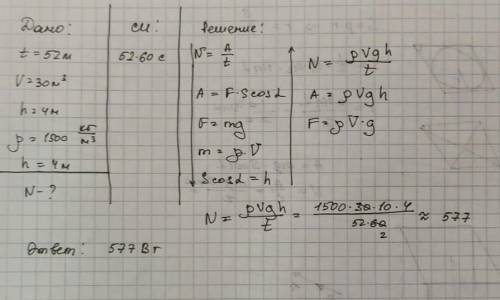 Дано:
t = 52м
V = 30м³
h = 4м
ρ = 1500 кг/м³
h = 4м
N - ?
си:
52·60 с
Решение:
N = A/t
A = F·Scosα
F = mg
m = ρ·V
Scosα = h
N = ρVgh/t
A = ρVgh
F = ρV·g
N = ρVgh/t = 1500·30·10·4/52·60 ≈ 577
2
Ответ: 577 Вт